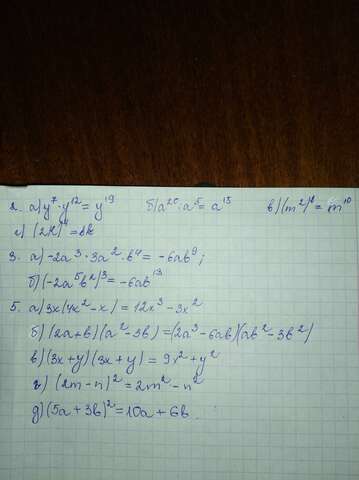 2. а) y⁷·y¹²= y¹⁹ б) a²⁰·a⁵= a¹⁵ в) (m²)⁸= m¹⁰
г) (2k)⁴=8k
3. а) -2a³·3a²·b⁴= -6ab⁹;
б) (-2a⁵b²)³= -6ab¹³
5. а) 3x(4x²-x)= 12x³-3x²
б) (2a+b)(a²-3b)=(2a³-6ab)(ab²-3b²)
в) (3x+y)(3x+y)= 9x²+y²
г) (2m-n)²=2m²-n²
д) (5a+3b)²=10a+6b.